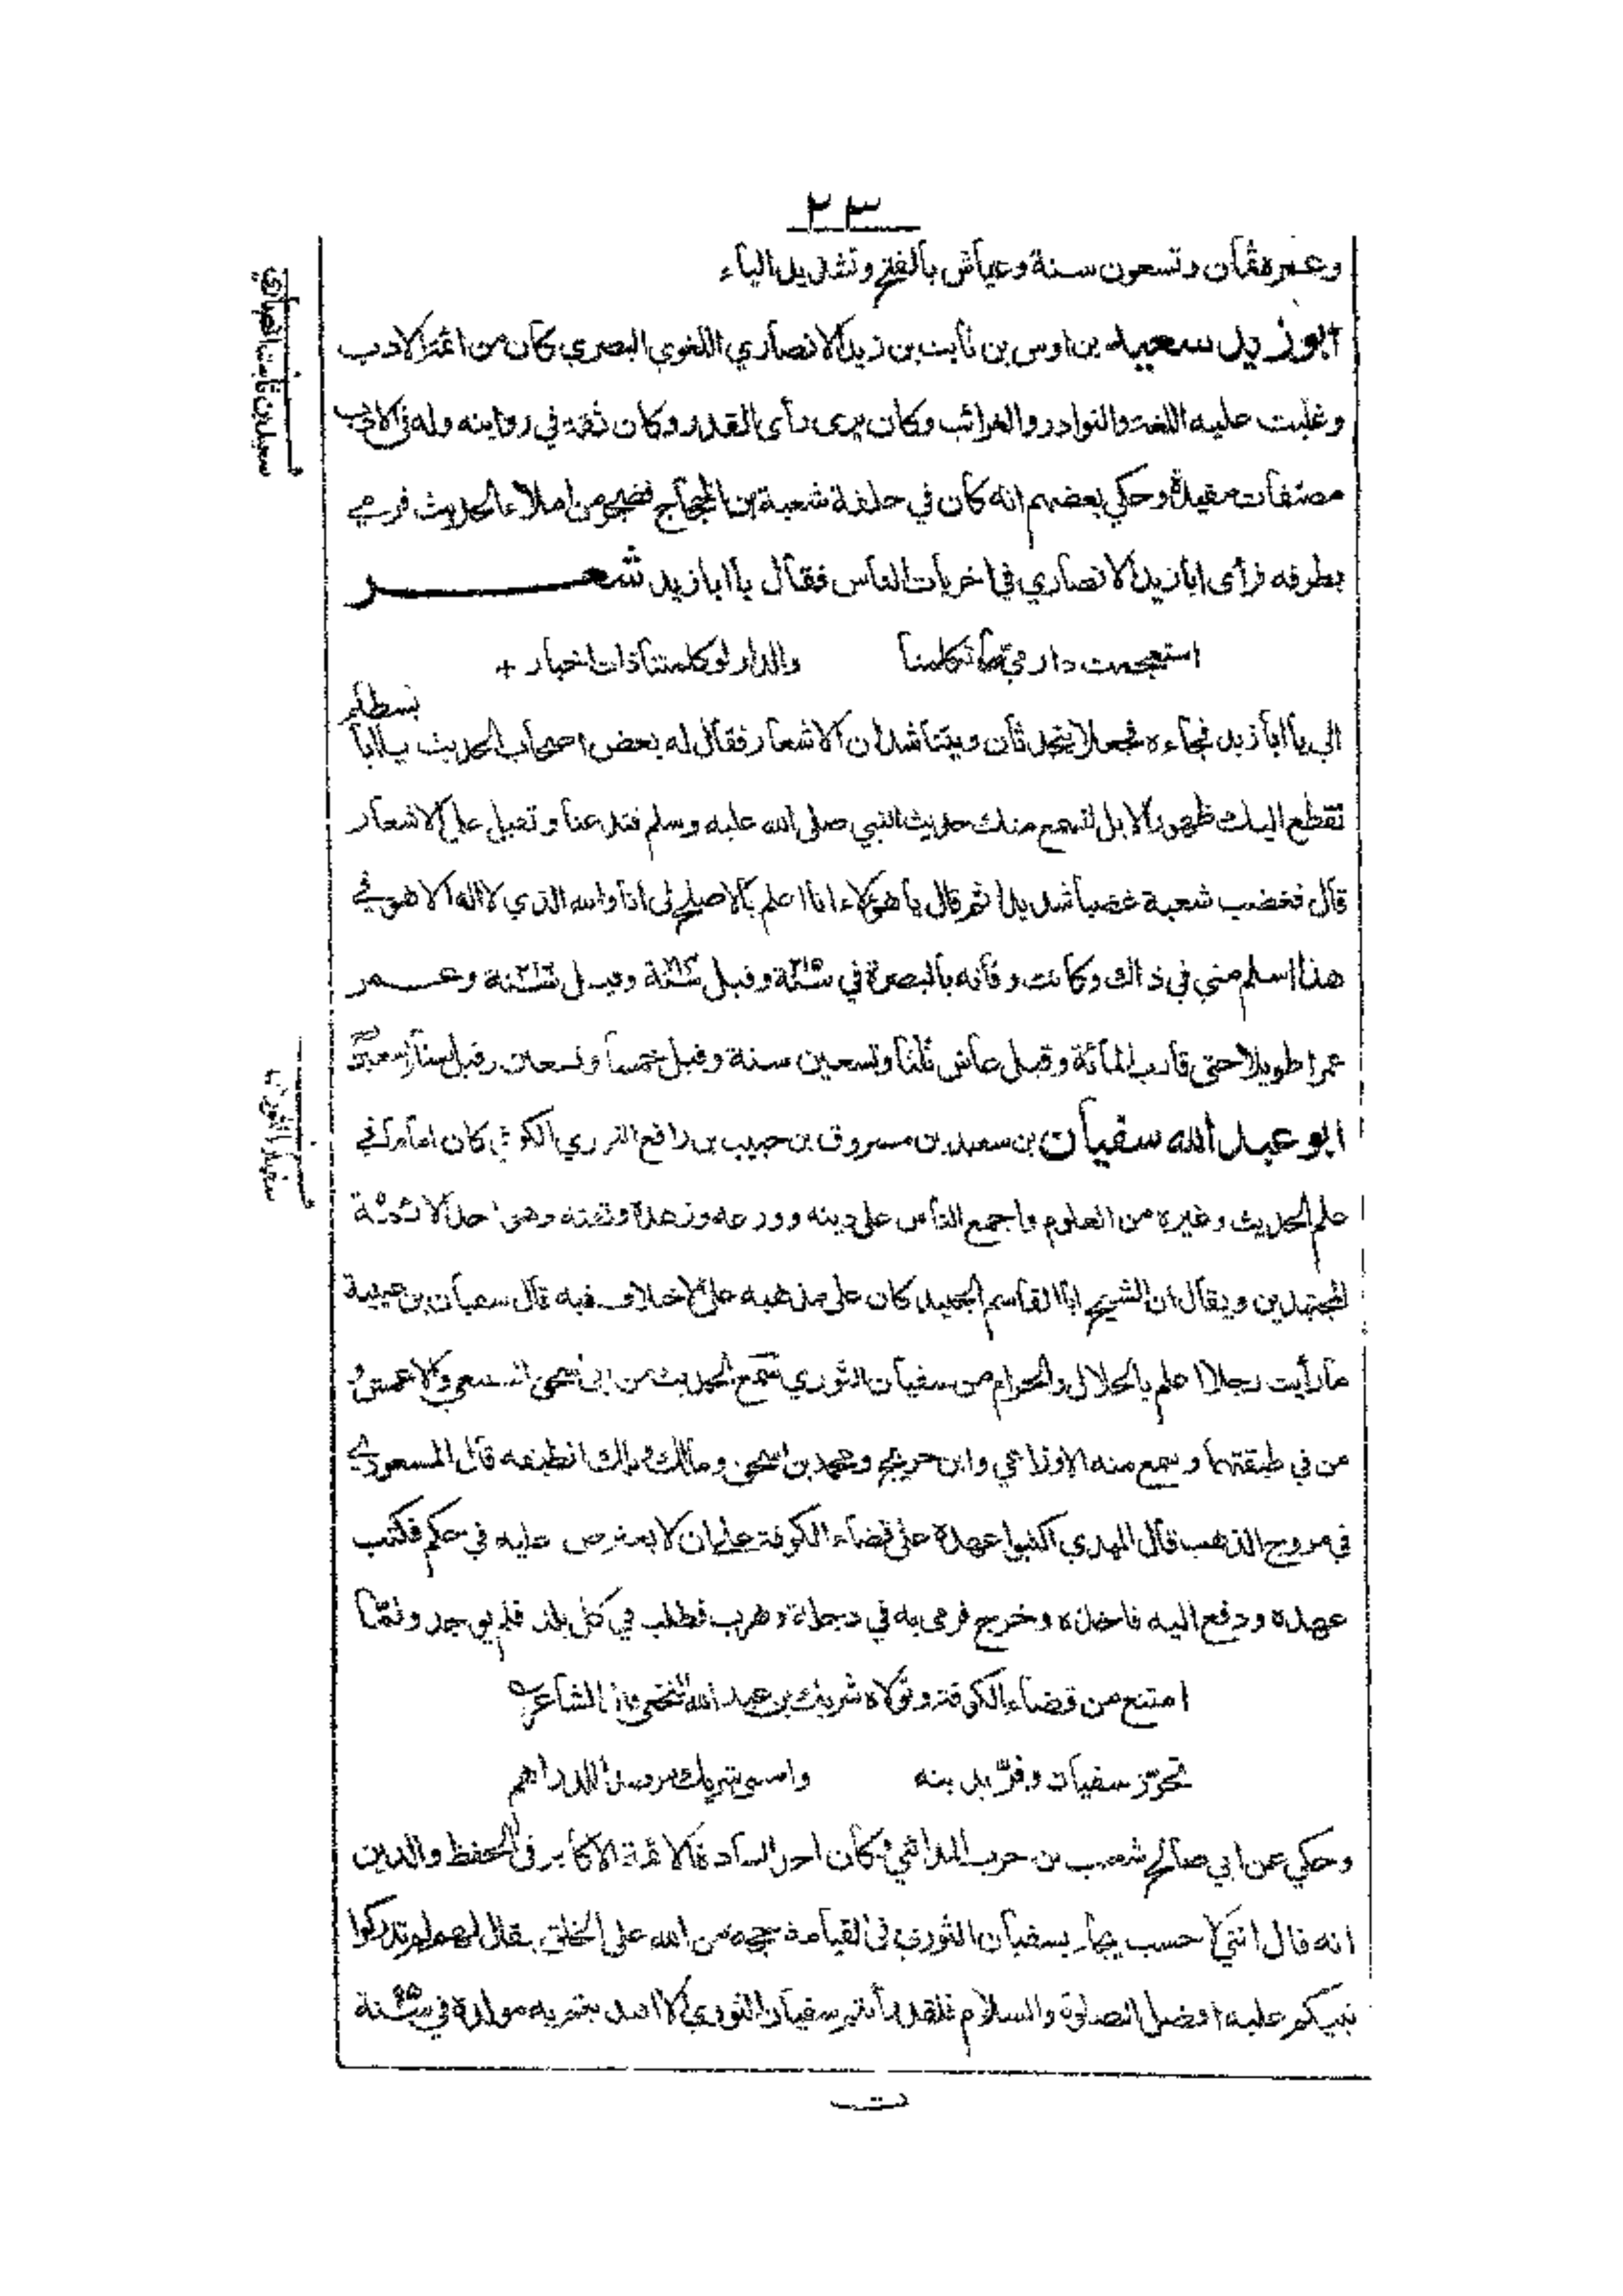 ٢٣
وعمره ثمان وتسعون سنة وعياش بالفتح وتشديد الياء
ابو زيد سعيد بن اوس بن ثابت بن زيد الانصاري اللغوي البصري كان من ائمة الادب
وغلبت عليه اللغة والنوادر والغرائب وكان يرى رأى القدر وكان ثقة في روايته وله في الادب
مصنفات مفيدة وحكي بعضهم انه كان في حلقة شعبة بن الحجاج فضجر من املاء الحديث فرمي
بطرفه فرأى ابا زيد الانصاري في اخريات الناس فقال يا ابا زيد شعر
استعجمت دار مي ما تكلمنا والدار لو كلمتنا ذات اخبار +
الي يا ابا زيد فجاءه فجعلا يتحدثان ويتناشدان الاشعار فقال له بعض اصحاب الحديث يا ابا بسطام
نقطع اليك ظهور الابل لنسمع منك حديث النبي صلى الله عليه وسلم فتدعنا وتقبل على الاشعار
قال فغضب شعبة غضبا شديدا ثم قال يا هؤلاء انا اعلم بالاصلح لى انا والله الذي لا اله الا هو في
هذا اسلم مني في ذاك وكانت وفاته بالبصرة في سنة ٢١٥ وقيل سنة وقيل سنة وعمر
عمرا طويلا حتى قارب المائة وقيل عاش ثلثا وتسعين سنة وقيل خمسا وتسعين وقيل ستا وتسعين
ابو عبد الله سفيان بن سعيد بن مسروق بن حبيب بن رافع الثوري الكوفي كان اماما في
علم الحديث وغيره من العلوم واجمع الناس على دينه وورعه وزهده وثقته وهو احد الائمة
المجتهدين ويقال ان الشيخ ابا القاسم الجنيد كان على مذهبه على الاختلاف فيه قال سفيان بن عيينة
ما رأيت رجلا اعلم بالحلال والحرام من سفيان الثوري سمع الحديث من ابي اسحق السبيعي والاعمش و
من في طبقتهما وسمع منه الاوزاعي وابن جريج ومحمد بن اسحق ومالك وتلك الطبقة قال المسعودي
في مروج الذهب قال المهدي اكتبوا عهده على قضاء الكوفة على ان لا يعترض عليه في حكم فكتب
عهده ودفع اليه فاخذه وخرج فرمى به في دجلة وهرب فطلب في كل بلد فلم يوجد ولما
امتنع من قضاء الكوفة وتولاه شريك بن عبد الله النخعي قال الشاعر
تحرز سفيان وفر بدينه وامسى شريك مرصدا للدراهم
وحكي عن ابي صالح شعيب بن حرب المدائني وكان احد السادة الائمة الاكابر في الحفظ والدين
انه قال اني لاحسب يجاء بسفيان الثوري في القيامة حجة من الله على الخلق يقال لهم لم تدركوا
نبيكم عليه افضل الصلوة والسلام فلقد رأيتم سفيان الثوري الا اقتديتم به مولده في سنة ٩٥
سعيد بن ثابت انصاري
سفيان الثوري